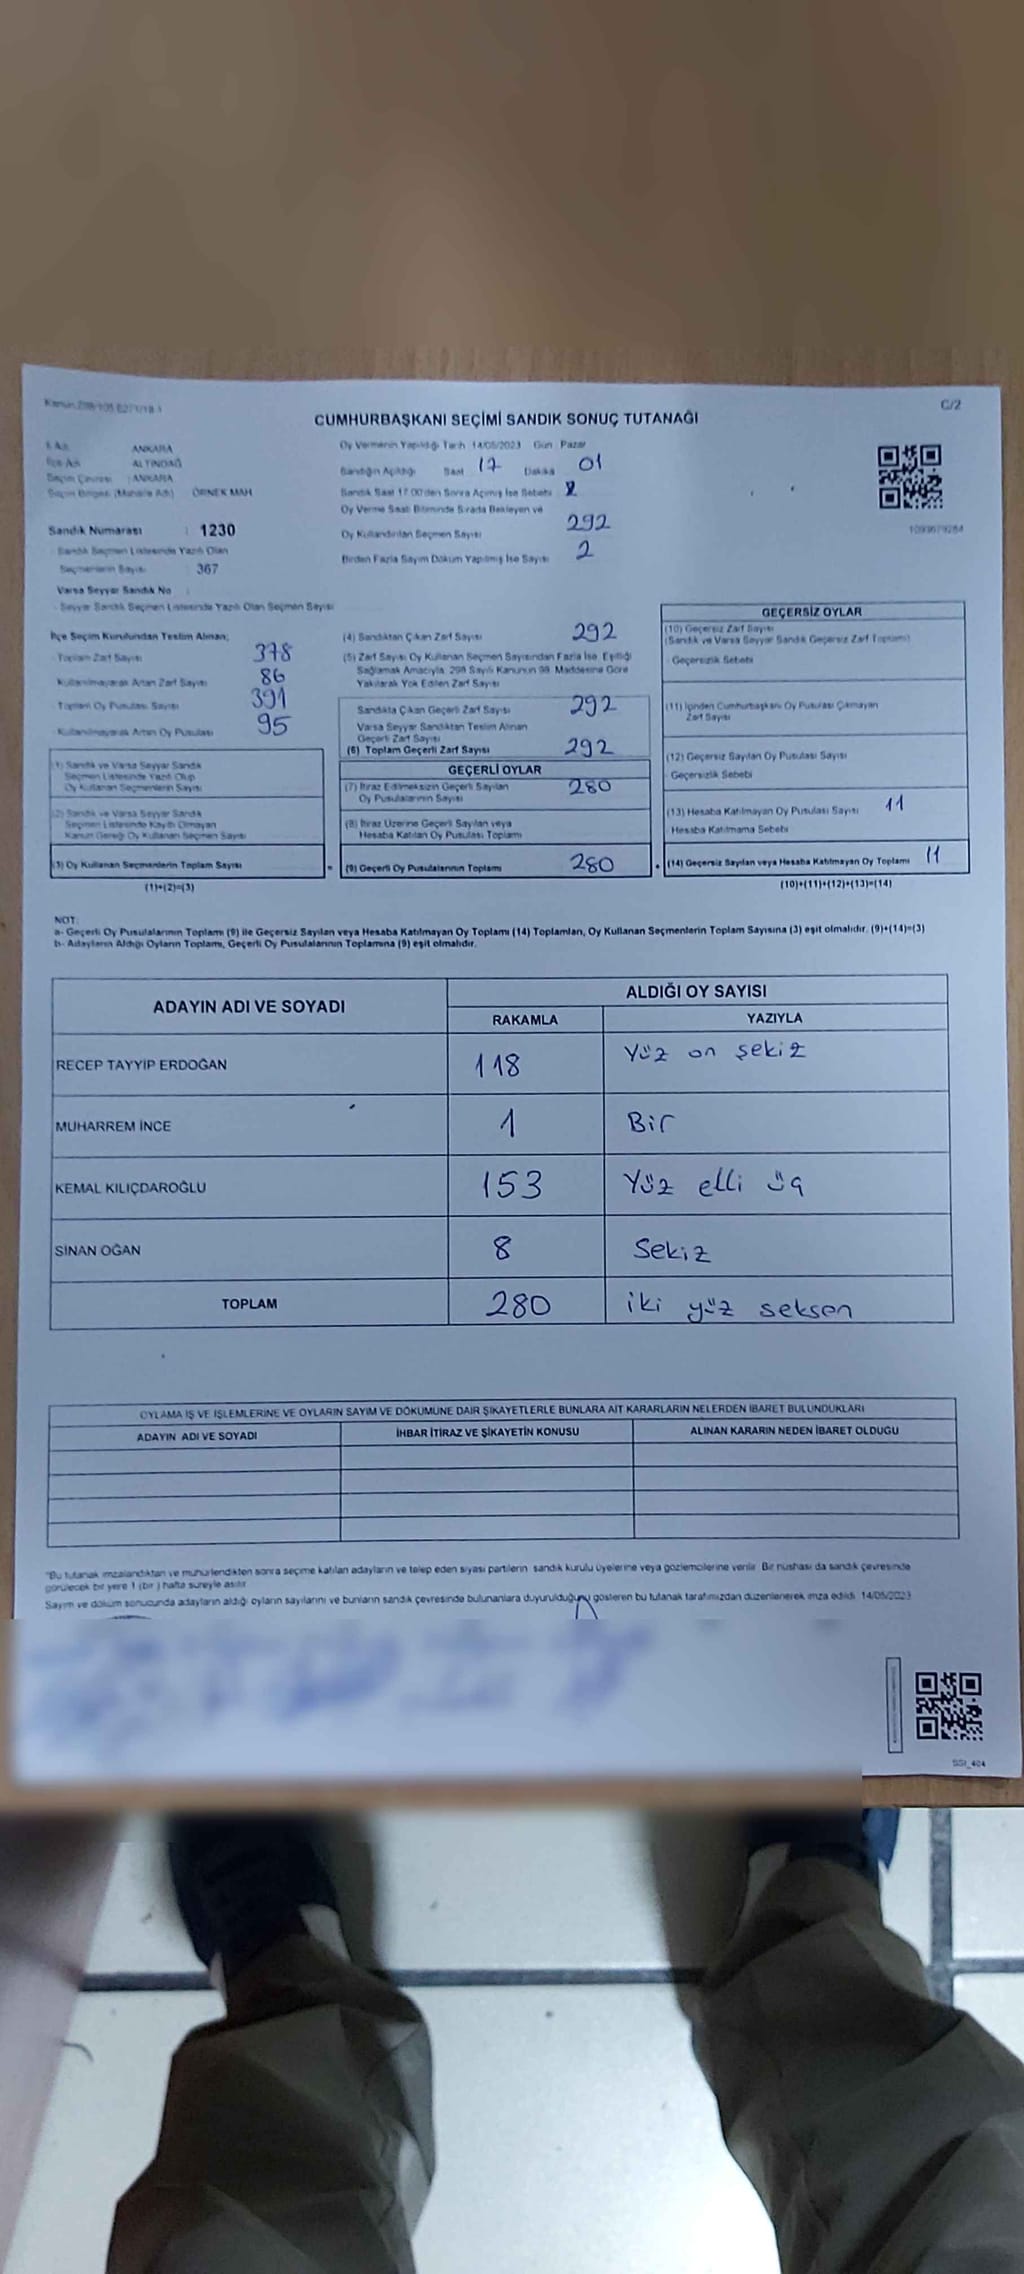 C/2
CUMHURBAŞKANI SEÇİMİ SANDIK SONUÇ TUTANAĞI
İl Adı : ANKARA
İlçe Adı : ALTINDAĞ
Seçim Çevresi : ANKARA
Seçim Bölgesi (Mahalle Adı) : ÖRNEK MAH
Sandık Numarası : 1230
Sandık Seçmen Listesinde Yazılı Olan
Seçmenlerin Sayısı 367
Varsa Seyyar Sandık No :
Seyyar Sandık Seçmen Listesinde Yazılı Olan Seçmen Sayısı
Oy Vermenin Yapıldığı Tarih 14/05/2023 Gün : Pazar
Sandığın Açıldığı Saat 17 Dakika 01
Sandık Saat 17.00'den Sonra Açılmış İse Sebebi
Oy Verme Saati Bitiminde Sırada Bekleyen ve
Oy Kullandırılan Seçmen Sayısı 292
Birden Fazla Sayım Döküm Yapılmış İse Sayısı 2
1093679264
İlçe Seçim Kurulundan Teslim Alınan;
Toplam Zarf Sayısı 378
Kullanılmayarak Artan Zarf Sayısı 86
Toplam Oy Pusulası Sayısı 391
Kullanılmayarak Artan Oy Pusulası 95
(1) Sandık ve Varsa Seyyar Sandık
Seçmen Listesinde Yazılı Olup
Oy Kullanan Seçmenlerin Sayısı
(2) Sandık ve Varsa Seyyar Sandık
Seçmen Listesinde Kayıtlı Olmayan
Kanun Gereği Oy Kullanan Seçmen Sayısı
(3) Oy Kullanan Seçmenlerin Toplam Sayısı =
(1)+(2)=(3)
(4) Sandıktan Çıkan Zarf Sayısı 292
(5) Zarf Sayısı Oy Kullanan Seçmen Sayısından Fazla İse, Eşitliği
Sağlamak Amacıyla, 298 Sayılı Kanunun 98. Maddesine Göre
Yakılarak Yok Edilen Zarf Sayısı
Sandıkta Çıkan Geçerli Zarf Sayısı 292
Varsa Seyyar Sandıktan Teslim Alınan
Geçerli Zarf Sayısı
(6) Toplam Geçerli Zarf Sayısı 292
GEÇERLİ OYLAR
(7) İtiraz Edilmeksizin Geçerli Sayılan
Oy Pusulalarının Sayısı 280
(8) İtiraz Üzerine Geçerli Sayılan veya
Hesaba Katılan Oy Pusulası Toplamı
(9) Geçerli Oy Pusulalarının Toplamı 280 +
GEÇERSİZ OYLAR
(10) Geçersiz Zarf Sayısı
(Sandık ve Varsa Seyyar Sandık Geçersiz Zarf Toplamı)
Geçersizlik Sebebi
(11) İçinden Cumhurbaşkanı Oy Pusulası Çıkmayan
Zarf Sayısı
(12) Geçersiz Sayılan Oy Pusulası Sayısı
Geçersizlik Sebebi
(13) Hesaba Katılmayan Oy Pusulası Sayısı 11
Hesaba Katılmama Sebebi
(14) Geçersiz Sayılan veya Hesaba Katılmayan Oy Toplamı 11
(10)+(11)+(12)+(13)=(14)
NOT:
a- Geçerli Oy Pusulalarının Toplamı (9) ile Geçersiz Sayılan veya Hesaba Katılmayan Oy Toplamı (14) Toplamları, Oy Kullanan Seçmenlerin Toplam Sayısına (3) eşit olmalıdır. (9)+(14)=(3)
b- Adayların Aldığı Oyların Toplamı, Geçerli Oy Pusulalarının Toplamına (9) eşit olmalıdır.
ADAYIN ADI VE SOYADI
ALDIĞI OY SAYISI
RAKAMLA YAZIYLA
RECEP TAYYİP ERDOĞAN 118 Yüz on şekiz
MUHARREM İNCE 1 Bir
KEMAL KILIÇDAROĞLU 153 Yüz elli üç
SİNAN OĞAN 8 Sekiz
TOPLAM 280 iki yüz seksen
OYLAMA İŞ VE İŞLEMLERİNE VE OYLARIN SAYIM VE DÖKÜMÜNE DAİR ŞİKAYETLERLE BUNLARA AİT KARARLARIN NELERDEN İBARET BULUNDUKLARI
ADAYIN ADI VE SOYADI İHBAR İTİRAZ VE ŞİKAYETİN KONUSU ALINAN KARARIN NEDEN İBARET OLDUĞU
"Bu tutanak imzalandıktan ve mühürlendikten sonra seçime katılan adayların ve talep eden siyasi partilerin sandık kurulu üyelerine veya gözlemcilerine verilir. Bir nüshası da sandık çevresinde
görülecek bir yere 1 (bir) hafta süreyle asılır.
Sayım ve döküm sonucunda adayların aldığı oyların sayılarını ve bunların sandık çevresinde bulunanlara duyurulduğunu gösteren bu tutanak tarafımızdan düzenlenerek imza edildi. 14/05/2023
SSI_404